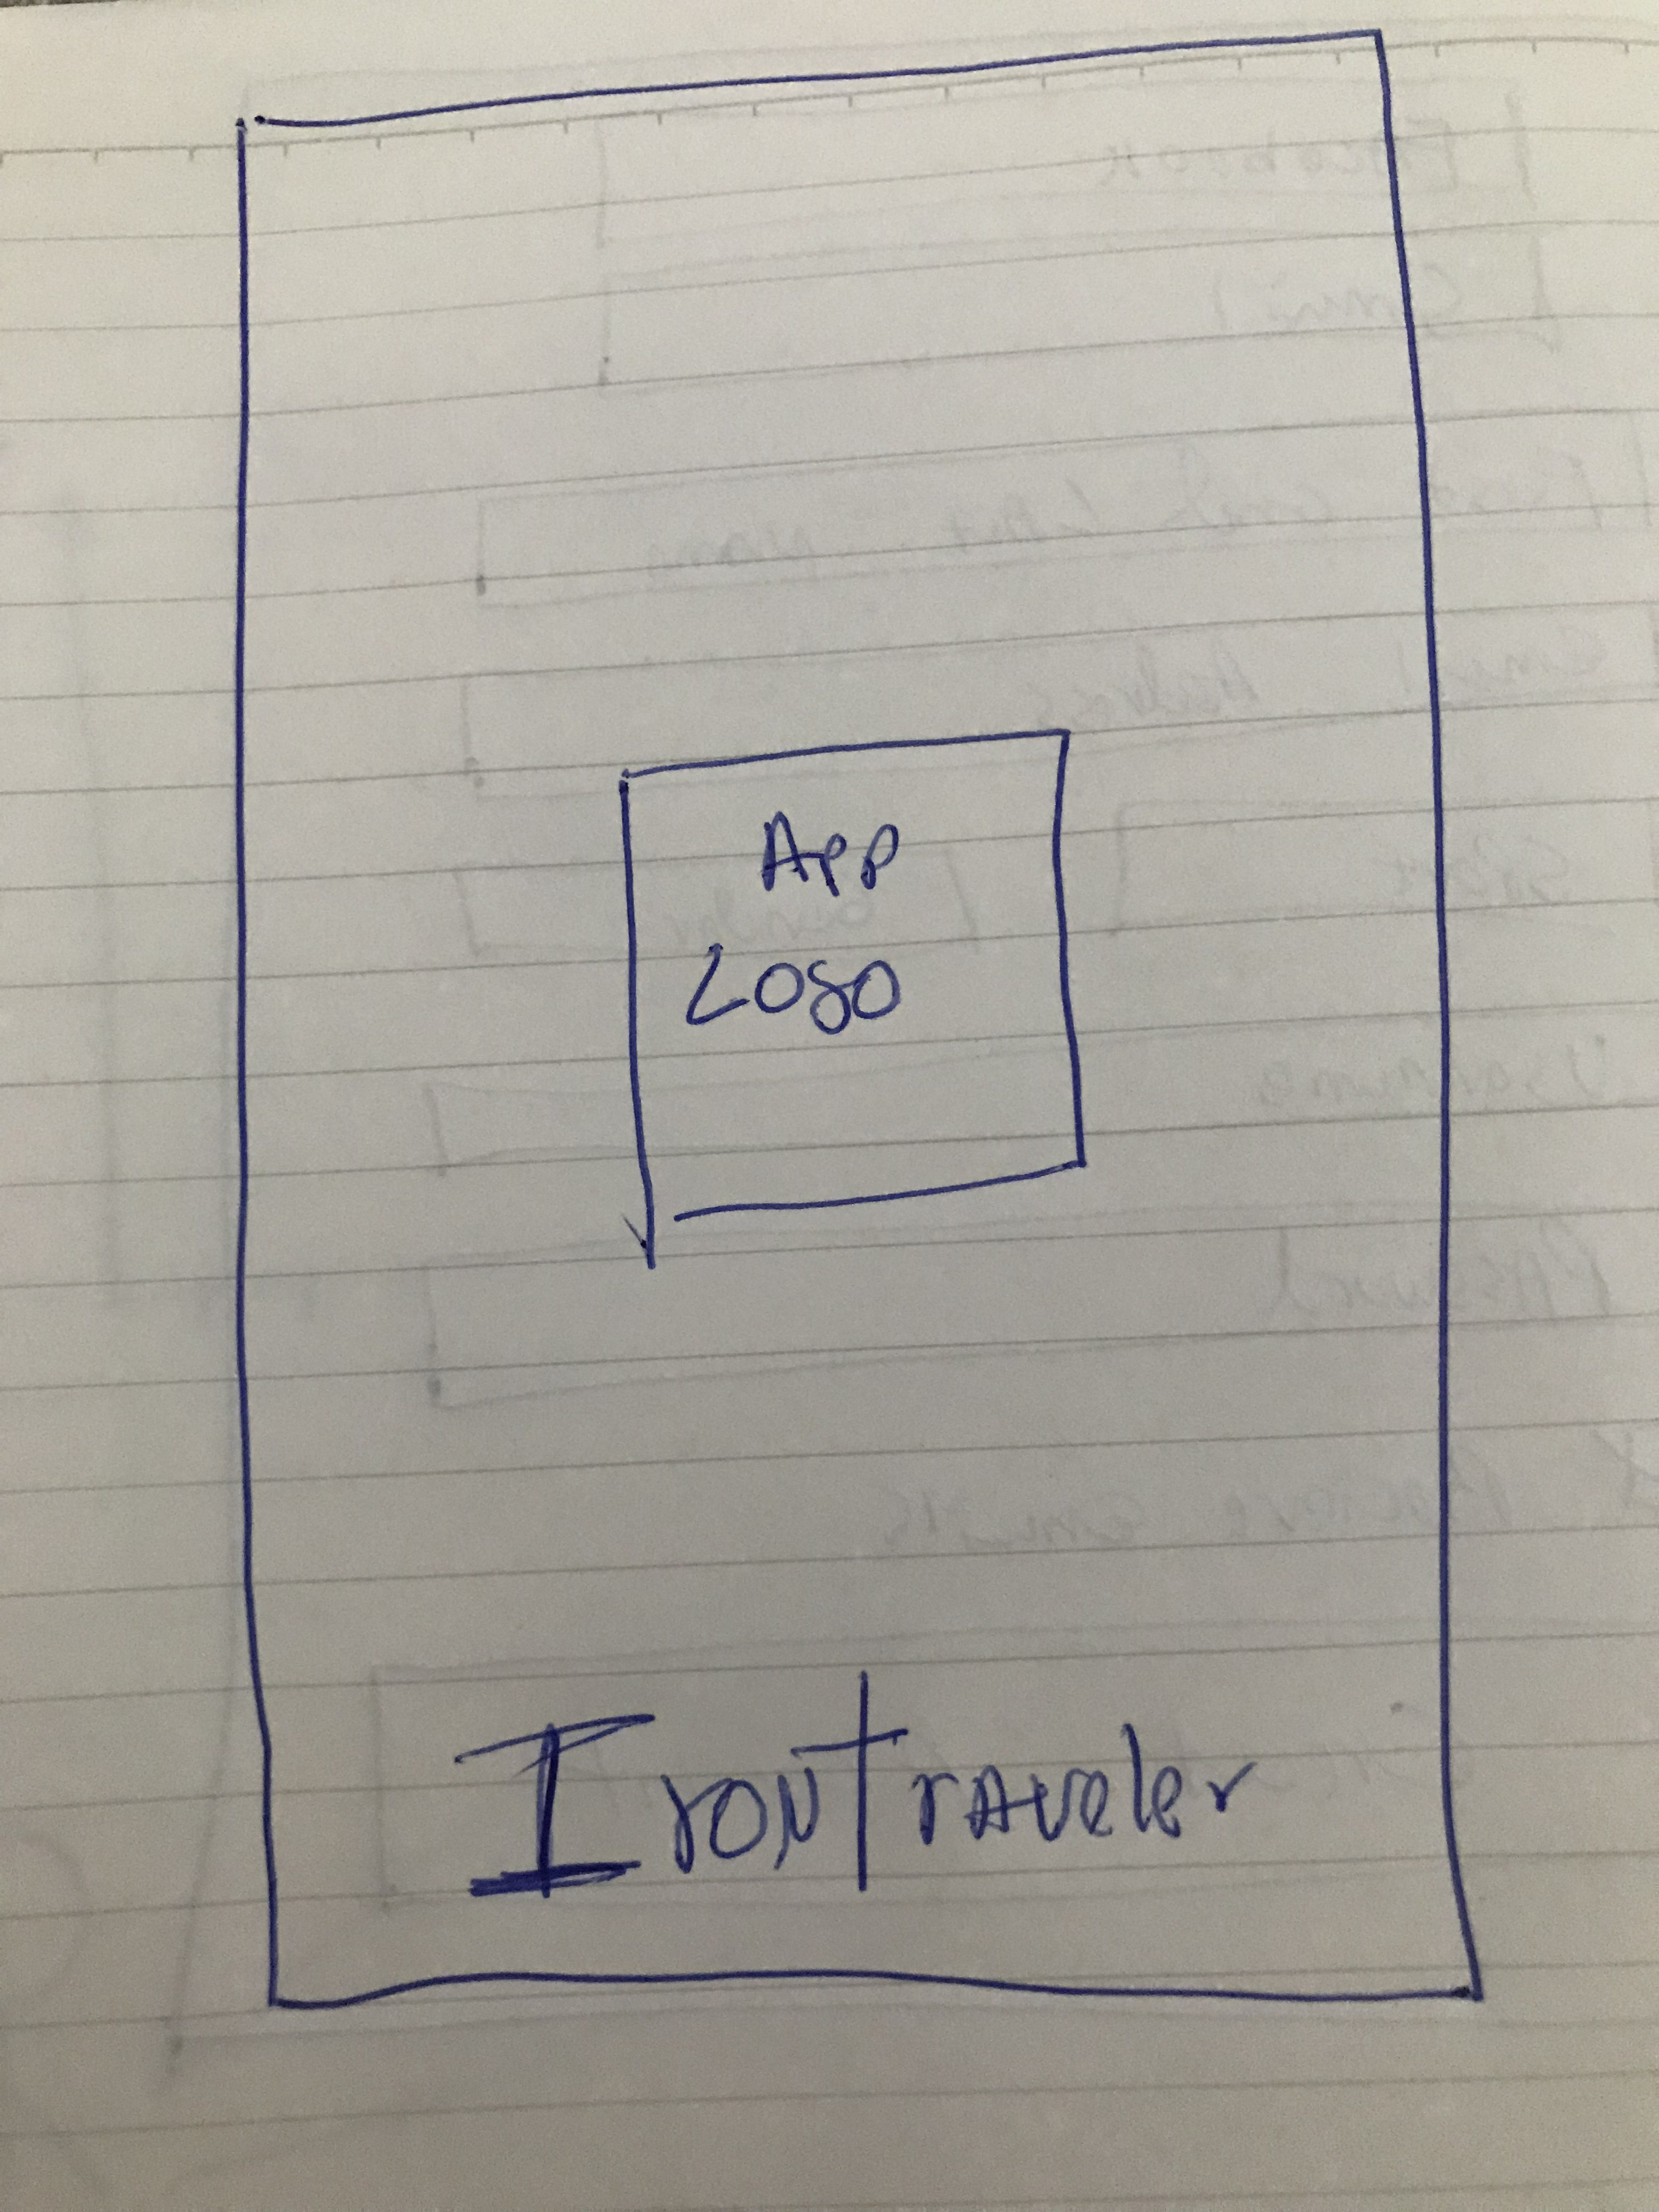 App
Logo
IronTraveler